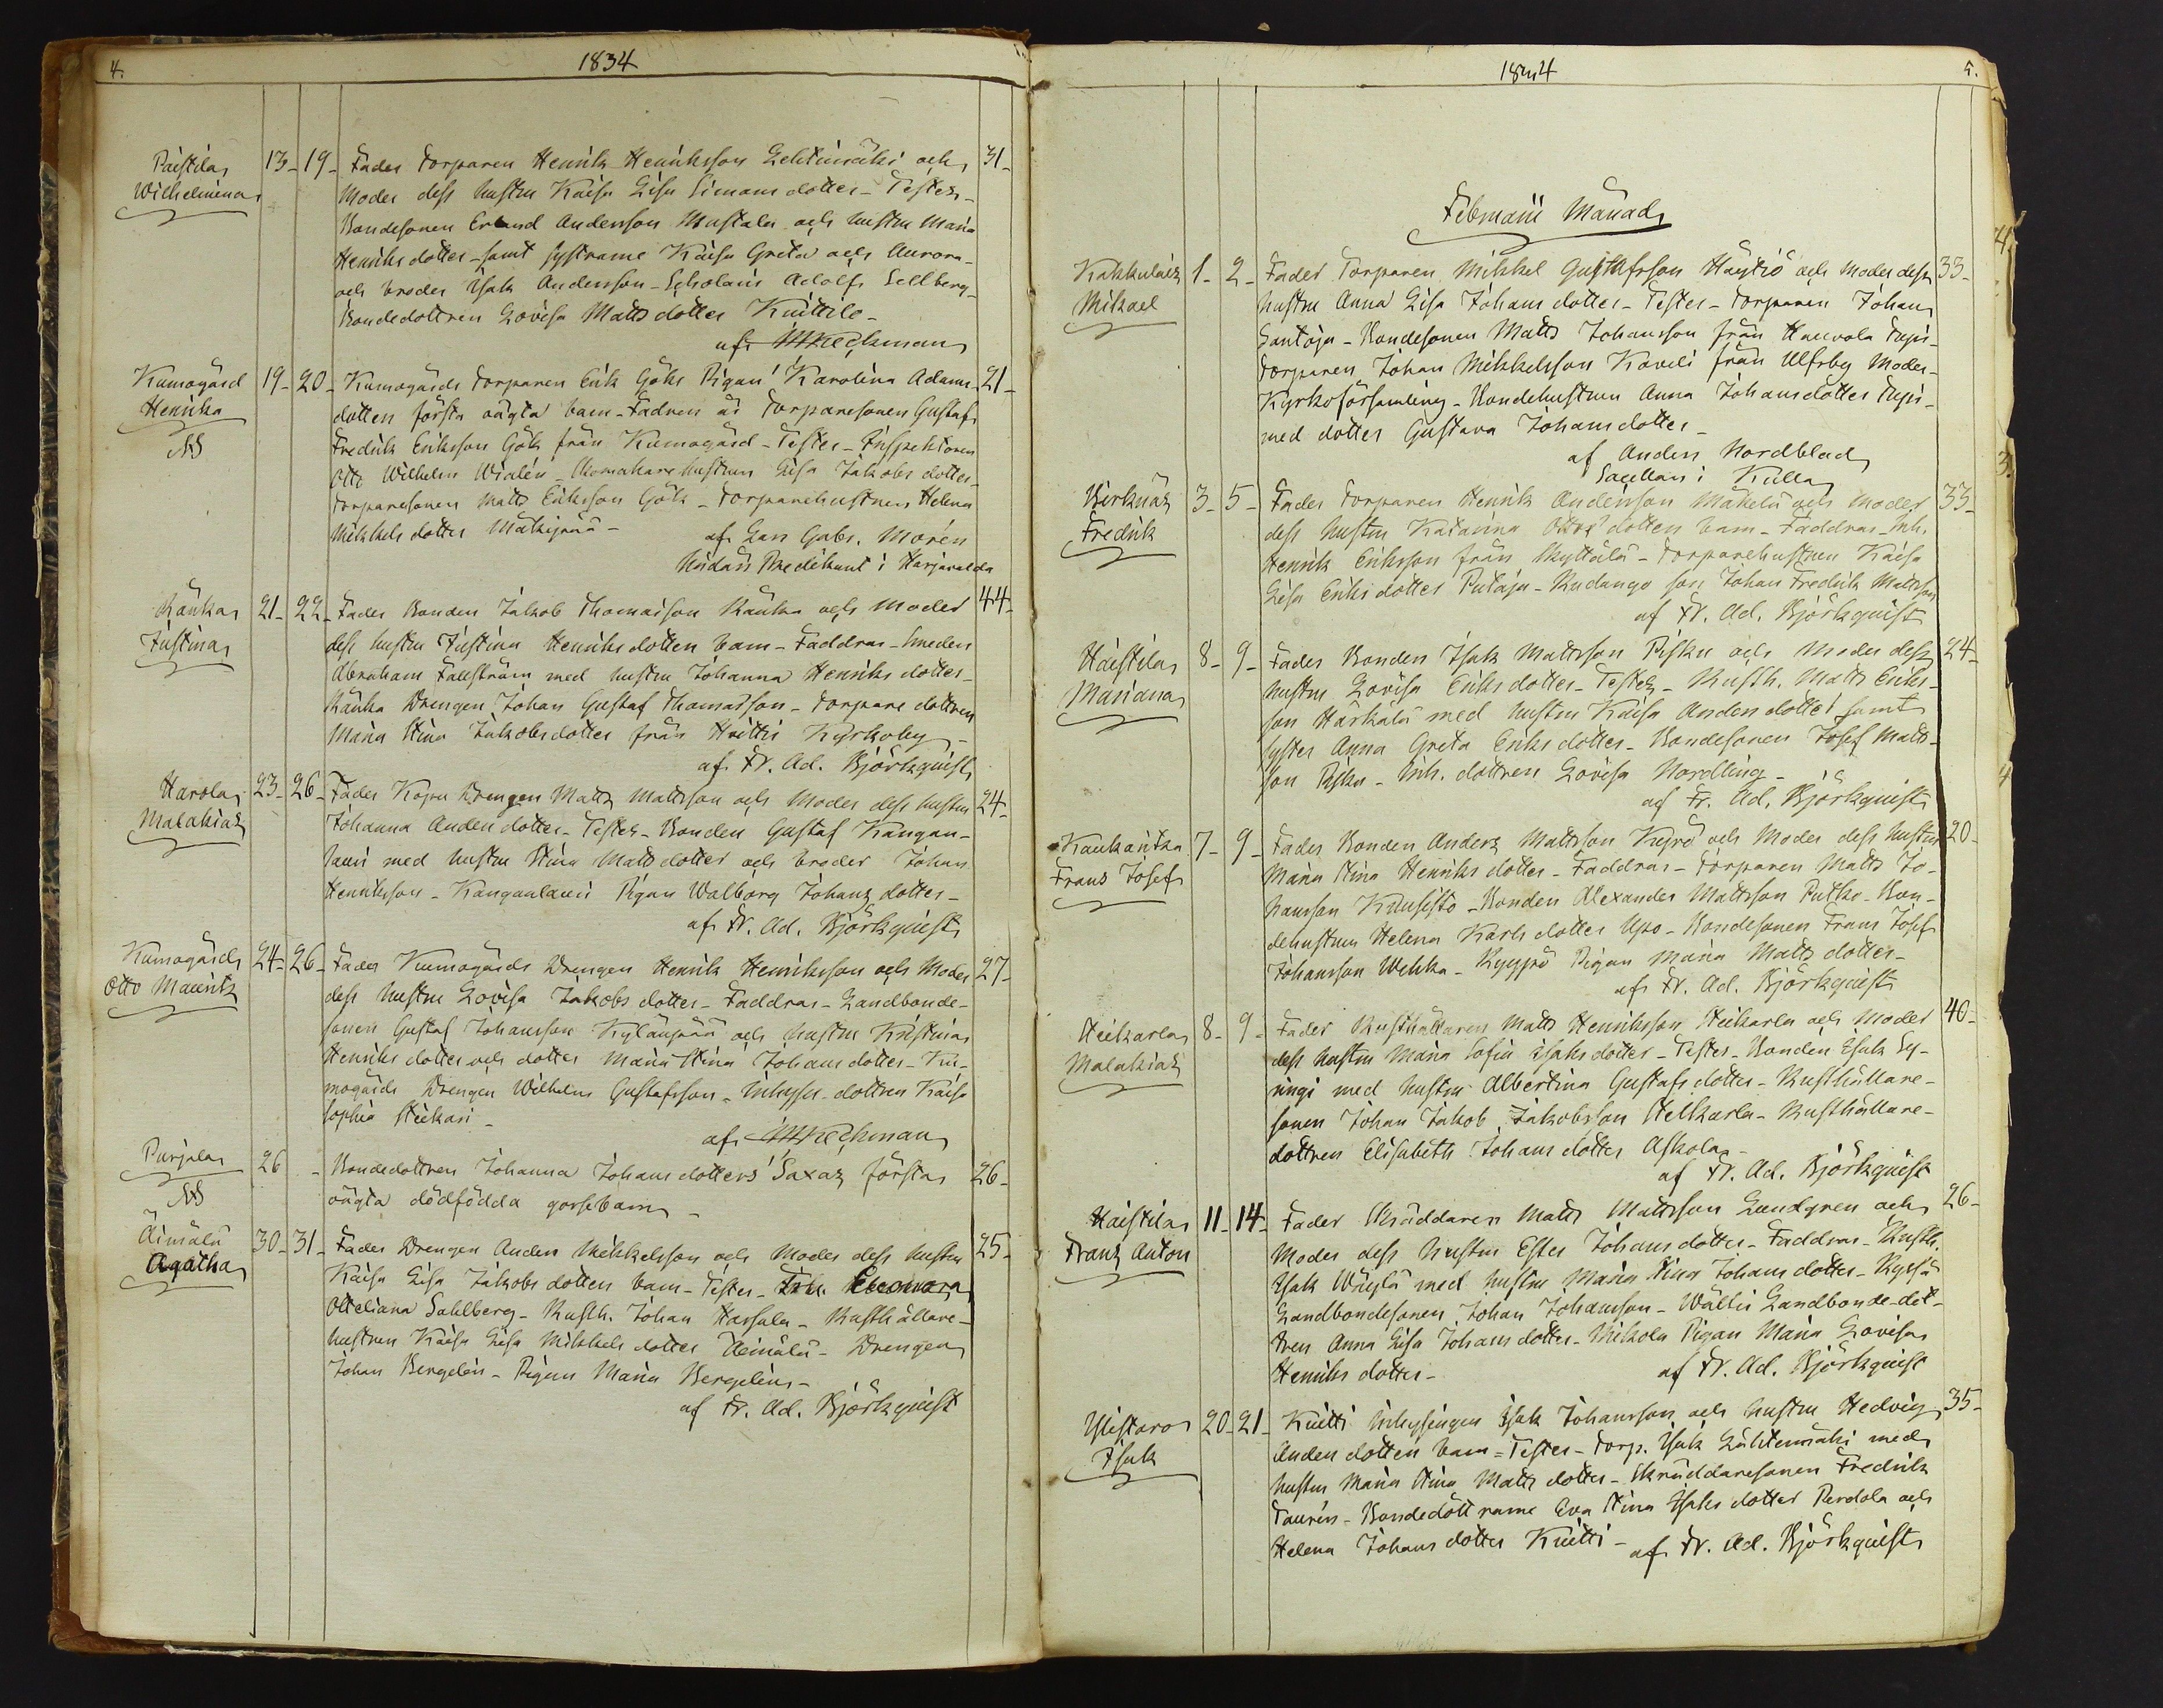 4.
1834
Paistila 13-19- Fader Torparen Henrik Henriksson Lehtimäki och 31-
Wilhelmina Moder dess hustru Kaisa Lisa Simons dotter - Testes -
Bondesonen Erland Andersson Mustala och hustru Maria
Henriks dotter - samt systrarne Kaisa Greta och Aurora -
och broder Isak Andersson - Scholaris Adolf Sellberg -
Bondedottren Lovisa Matts dotter Knittilo -
af
Kumogård 19-20- Kumogårds Torparen Erik Göks Pigan Karolina Adams 21-
Henrika dotters första oägta barn - Fadren är Torparesonen Gustaf
NB Fredrik Eriksson Gök från Kumogård - Testes - Inspektoren
Otto Wilhelm Widlén - Skomakarehustrun Lisa Jakobs dotter -
Torparesonen Matts Eriksson Gök - Torparehustrun Helena
Mikkels dotter Mälkipää -
af Lars Gabr. Morén
Nådårs Predikant i Harjavalda
Ränka 21-22- Fader Bonden Jakob Thomasson Ränka och Moder 44-
Justina dess hustru Justina Henriks dotters barn - Faddrar - Smeden
Abraham Fallström med hustru Johanna Henriks dotter -
Ränka Drengen Johan Gustaf Thomasson - Torpare dottren
Maria Stina Jakobs dotter från Hvittis Kyrkoby -
af Fr. Ad. Björkquist
Harola 23-26- Fader Kojon Drengen Matts Mattsson och Moder dess hustru 24-
Malakias Johanna Anders dotter - Testes - Bonden Gustaf Kangan-
lauri med hustru Stina Matts dotter och broder Johan
Henriksson - Kanganlauri Pigan Walborg Johans dotter -
af Fr. Ad. Björkquist
Kumogårds 24-26- Fader Kumogårds Drengen Henrik Henriksson och Moder 27-
Otto Mauritz dess hustru Lovisa Jakobs dotter - Faddrar - Landbonde-
sonen Gustaf Johansson Kylänpää och hustru Kristina
Henriks dotter och dotter Maria Stina Johans dotter - Ku-
mogårds Drengen Wilhelm Gustafsson - Inhyses-dottren Kaisa
Sophia Heikari -
af
Purjala 26 - Bondedottren Johanna Johans dotters Saxas första 26-
NB oägta dödfödda gossebarn -
Äimälä 30-31- Fader Drengen Anders Mikkelsson och Moder dess hustru 25-
Agatha Kaisa Lisa Jakobs dotters barn - Testes - Eleonora
Otteliana Sahlberg - Rusth. Johan Hassala - Rusthållare-
hustrun Kaisa Lisa Mikkels dotter Heinälä - Drengen
Johan Bergelin - Pigan Maria Bergelin -
af Fr. Ad. Björkquist
1834
5.
Februarii Månad
Kakkulais 1-2- Fader Torparen Mikkel Gustafsson Häyhiö och Moder dess 33-
Mikael hustru Anna Lisa Johans dotter - Testes - Torparen Johan
Santoja - Bondesonen Matts Johansson från Haevola
Torparen Johan Mikkelsson Koveli från Ulfsby Moder-
Kyrkoförsamling - Bondehustrun Anna Johansdotter
med dotter Gustava Johans dotter -
af Anders Nordblad
Sacellan i Kulla
Kirknäs 3-5- Fader Torparen Henrik Andersson Mäkelä och Moder 33-
Fredrik dess hustru Katarina dotters barn - Faddrar - Inh.
Henrik Eriksson från Skyttälä - Torparehustrun Kaisa
Lisa Eriks dotter Putaja - Rudanga son Johan Fredrik Mattsson
af Fr. Ad. Björkquist
Haistila 8-9- Fader Bonden Isak Mattsson Pisku och Moder dess 24-
Mariana hustru Lovisa Eriks dotter - Testes - Rusth. Matts Eriks-
son Härkälä med hustru Kaisa Anders dotter samt
syster Anna Greta Eriks dotter - Bondesonen Josef Matts-
son Pisku - Inh. dottren Lovisa Nordling -
af Fr. Ad. Björkquist
Kaukaritsa 7-9- Fader Bonden Anders Mattsson Kyrö och Moder dess hustru 20-
Frans Josef Maria Stina Henriks dotter - Faddrar - Torparen Matts Jo-
hansson Kuusisto - Bonden Alexander Mattsson Putko - Bon-
dehustrun Helena Karls dotter Upo - Bondesonen Frans Josef
Johansson Wehka - Kyyrö Pigan Maria Matts dotter -
af Fr. Ad. Björkquist
Heikarla 8-9- Fader Rusthållaren Matts Henriksson Heikarla och Moder 40-
Malakias dess hustru Maria Sofia Isaks dotter - Testes - Bonden Isak Sy-
ringi med hustru Albertina Gustafs dotter - Rusthållare-
sonen Johan Jakob Jakobsson Heikarla - Rusthållare-
dottren Elisabeth Johans dotter Askola -
af Fr. Ad. Björkquist
Haistila 11-14- Fader Skräddaren Matts Mattsson Lundgren och 26-
Frans Anton Moder dess hustru Ester Johans dotter - Faddrar - Rusth.
Isak Wäylä med hustru Maria Stina Johans dotter - Kyrsä
Landbondesonen Johan Johansson - Wälli Landbonde-dot-
tren Anna Lisa Johans dotter - Mikola Pigan Maria Lovisa
Henriks dotter -
af Fr. Ad. Björkquist
Ylistaro 20-21- Knitti Inhysingen Isak Johansson och hustru Hedvig 35-
Isak Anders dotters barn - Testes - Torp. Isak Lähtenmäki med
hustru Maria Stina Matts dotter - Skräddaresonen Fredrik
Taurén - Bondedöttrarne Eva Stina Isaks dotter Perdola och
Helena Johans dotter Knitti -
af Fr. Ad. Björkquist